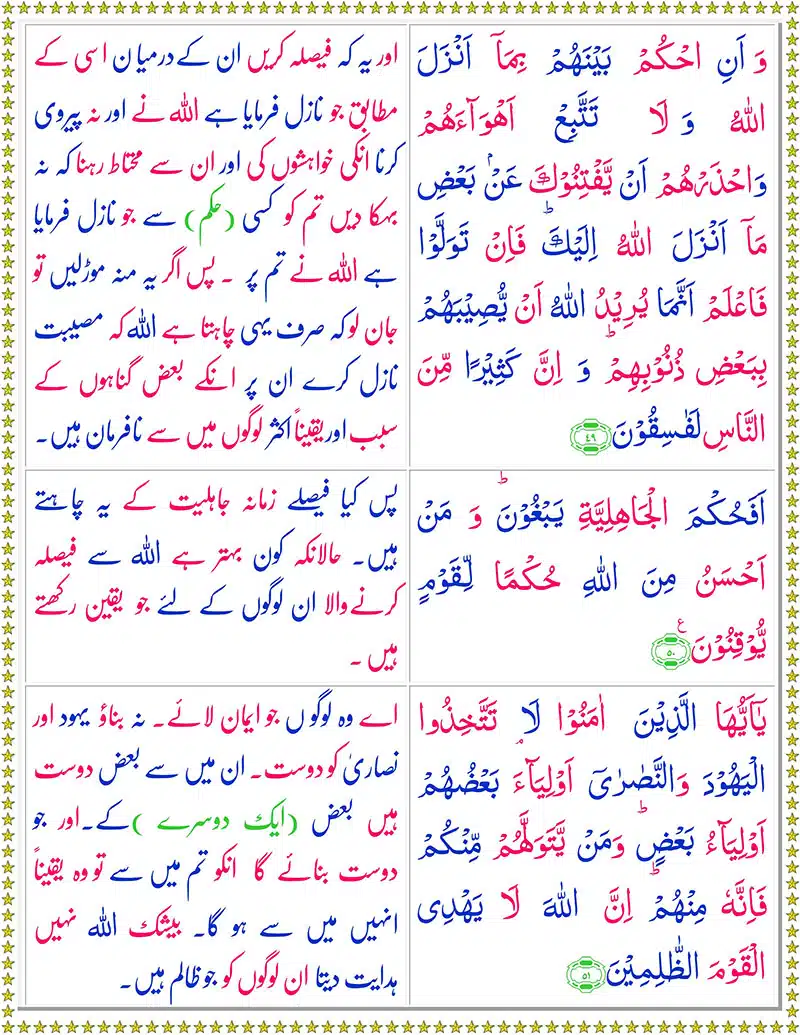 وَ اَنِ احْكُمْ بَيْنَهُمْ بِمَاۤ اَنْزَلَ
اللّٰهُ وَ لَا تَتَّبِعْ اَهْوَآءَهُمْ
وَاحْذَرْهُمْ اَنْ يَّفْتِنُوْكَ عَنْۢ بَعْضِ
مَاۤ اَنْزَلَ اللّٰهُ اِلَيْكَ ؕ فَاِنْ تَوَلَّوْا
فَاعْلَمْ اَنَّمَا يُرِيْدُ اللّٰهُ اَنْ يُّصِيْبَهُمْ
بِبَعْضِ ذُنُوْبِهِمْ ؕ وَ اِنَّ كَثِيْرًا مِّنَ
النَّاسِ لَفٰسِقُوْنَ ﴿۴۹﴾
اور یہ کہ فیصلہ کریں ان کے درمیان اسی کے
مطابق جو نازل فرمایا ہے اللہ نے اور نہ پیروی
کرنا انکی خواہشوں کی اور ان سے محتاط رہنا کہ نہ
بہکا دیں تم کو کسی (حکم) سے جو نازل فرمایا
ہے اللہ نے تم پر ۔ پس اگر یہ منہ موڑلیں تو
جان لو کہ صرف یہی چاہتا ہے اللہ کہ مصیبت
نازل کرے ان پر انکے بعض گناہوں کے
سبب اور یقیناً اکثر لوگوں میں سے نافرمان ہیں۔
اَفَحُكْمَ الْجَاهِلِيَّةِ يَبْغُوْنَ ؕ وَ مَنْ
اَحْسَنُ مِنَ اللّٰهِ حُكْمًا لِّقَوْمٍ
يُّوْقِنُوْنَ ﴿۵۰﴾ ع
پس کیا فیصلے زمانہ جاہلیت کے یہ چاہتے
ہیں۔ حالانکہ کون بہتر ہے اللہ سے فیصلہ
کرنے والا ان لوگوں کے لئے جو یقین رکھتے
ہیں ۔
يٰۤاَيُّهَا الَّذِيْنَ اٰمَنُوْا لَا تَتَّخِذُوا
الْيَهُوْدَ وَالنَّصٰرٰۤى اَوْلِيَآءَ ۘ بَعْضُهُمْ
اَوْلِيَآءُ بَعْضٍ ؕ وَمَنْ يَّتَوَلَّهُمْ مِّنْكُمْ
فَاِنَّهٗ مِنْهُمْ ؕ اِنَّ اللّٰهَ لَا يَهْدِى
الْقَوْمَ الظّٰلِمِيْنَ ﴿۵۱﴾
اے وہ لوگو ں جو ایمان لائے۔ نہ بناؤ یہود اور
نصاریٰ کو دوست۔ ان میں سے بعض دوست
ہیں بعض (ایک دوسرے ) کے۔اور جو
دوست بنائے گا انکو تم میں سے تو وہ یقیناً
انہیں میں سے ہو گا۔ بیشک اللہ نہیں
ہدایت دیتا ان لوگوں کو جو ظالم ہیں۔